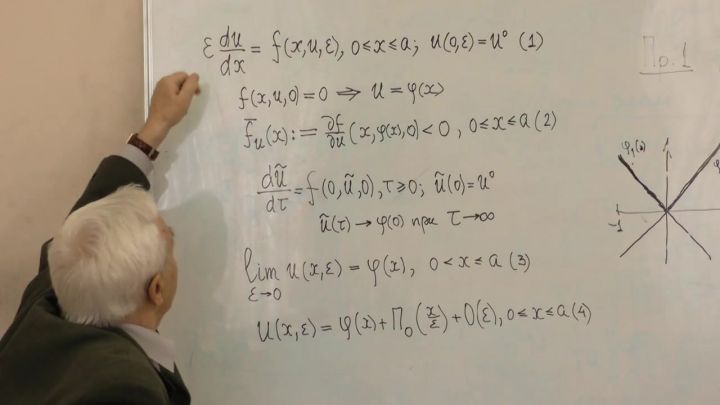 ε du/dx = f(x,u,ε), 0≤x≤a; u(0,ε)=u⁰ (1)
f(x,u,0)=0 ⟹ u=φ(x)
f̄ᵤ(x):= ∂f/∂u (x,φ(x),0)<0, 0≤x≤a (2)
dũ/dτ = f(0,ũ,0), τ≥0; ũ(0)=u⁰
ũ(τ)→φ(0) при τ→∞
lim ε→0 u(x,ε)=φ(x), 0<x≤a (3)
u(x,ε)=φ(x)+Π₀(x/ε)+O(ε), 0≤x≤a (4)
Пр. 1
φ₁(x)
-1